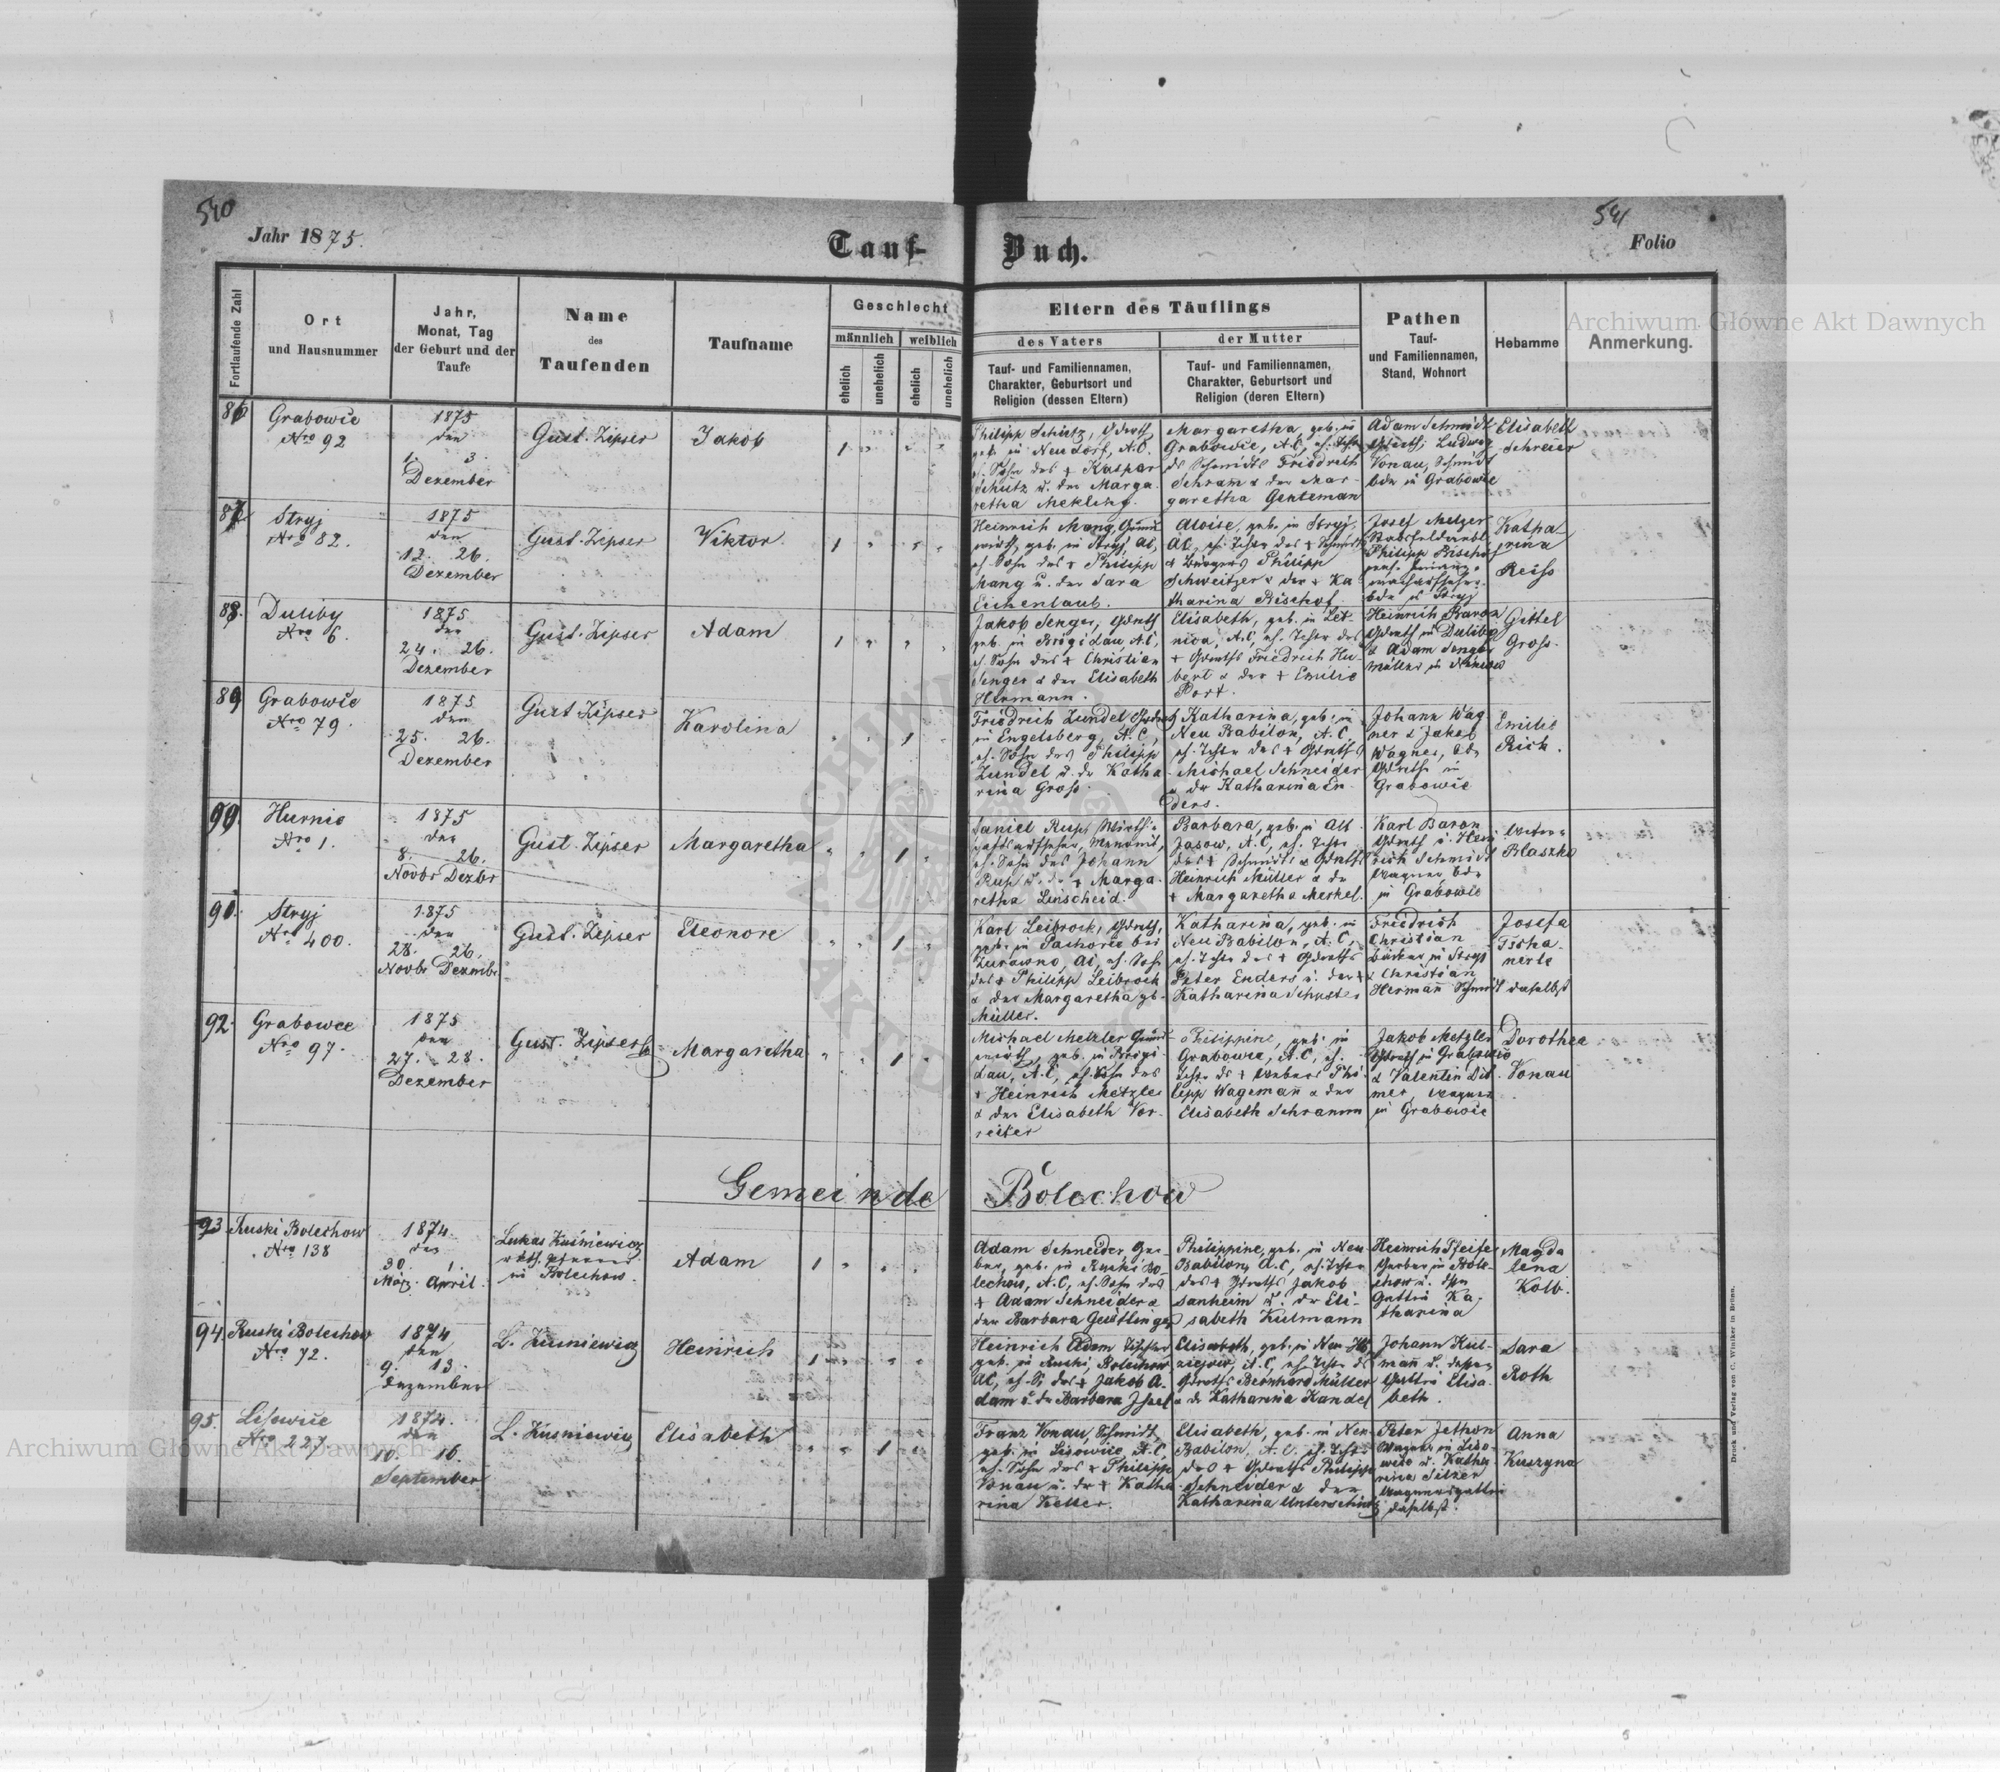 540
541
Jahr 1875.
Tauf-
Buch.
Folio
Archiwum Główne Akt Dawnych
Fortlaufende Zahl
Ort
und Hausnummer
Jahr,
Monat, Tag
der Geburt und der
Taufe
Name
des
Taufenden
Taufname
Geschlecht
männlich
weiblich
ehelich
unehelich
ehelich
unehelich
Eltern des Täuflings
des Vaters
der Mutter
Tauf- und Familiennamen,
Charakter, Geburtsort und
Religion (dessen Eltern)
Tauf- und Familiennamen,
Charakter, Geburtsort und
Religion (deren Eltern)
Pathen
Tauf-
und Familiennamen,
Stand, Wohnort
Hebamme
Anmerkung.
86
Grabowce
Nro 92
1875
den
1. 3.
Dezember
Gust. Zipser
Jakob
1
Philipp Schütz,
geb. in Neudorf, A.C.
eh. Sohn des + Kaspar
Schütz u. der Marga-
retha Mekling.
Margaretha, geb. in
Grabowce, A.C, eh. Tchtr
ds Schmidts Friedrich
Schram & der Mar-
garetha Genteman
Adam Schmidt
Ludwig
Vonau, Schmidt
bde in Grabowce
Elisabeth
Schreier
87
Stryj
Nro 82.
1875
den
12. 26.
Dezember
Gust. Zipser
Viktor
1
Heinrich Mang
geb. in Stryj, AC,
eh. Sohn des + Philipp
Mang u. der Sara
Eichenlaub.
Aloise, geb. in Stryj,
AC, eh. Tchtr des + Schmidts
& Bürgers Philipp
Schweitzer & der + Ka
tharina Bischof
Josef Metzger
Philipp Bischof
bde in Stryj
Katha
rina
Reiss
88.
Duliby
Nro 6.
1875
den
24. 26.
Dezember
Gust. Zipser
Adam
1
Jakob Senger,
geb. in Brigidau, A.C,
eh. Sohn des + Christian
Senger & der Elisabeth
Hermann.
Elisabeth, geb. in Let-
nica, A.C, eh. Tchtr des
+ Friedrich Hu-
bert & der + Emilie
Port.
Heinrich Baron
in Duliby
& Adam Senger
Müller in
Gittel
Gross.
89
Grabowce
Nro 79.
1875
den
25. 26.
Dezember
Gust Zipser
Karolina
1
Friedrich Zundel
in Engelsberg, A.C,
eh. Sohn des Philipp
Zundel u. der Katha
rina Gross.
Katharina, geb. in
Neu Babilon, A.C,
eh. Tchtr des +
Michael Schneider
u. der Katharina En-
ders.
Johann Wag
ner & Jakob
Wagner, bde
in
Grabowce
Emilie
Rich.
90.
Hurnie
Nro 1.
1875
den
8. 26.
Novbr Dezbr
Gust. Zipser
Margaretha
1
Daniel Rup, Wirth-
schaftsaufseher,
eh. Sohn des Johann
Rup u. der + Marga-
retha Linscheid.
Barbara, geb. in Alt
Jasow, A.C, eh. Tchtr
des + Schmidts &
Heinrich Müller & der
+ Margaretha Merkel.
Karl Baron
u. Hein
rich Schmidt
Wagner, bde
in Grabowce
Blaszko
91.
Stryj
Nro 400.
1875
den
28. 26.
Novbr Dezembr
Gust. Zipser
Eleonore
1
Karl Leibrock,
geb. in Pachorce bei
Zurawno, AC, eh. Sohn
des + Philipp Leibrock
& der Margaretha gb.
Müller.
Katharina, geb. in
Neu Babilon, A.C,
eh. Tchtr des +
Peter Enders u. der +
Katharina Schuster
Friedrich
Christian
Bäcker in Stryj
& Christian
Hermann Schmidt daselbst
Josefa
Tscha-
nerle
92.
Grabowce
Nro 97.
1875
den
27. 28.
Dezember
Gust. Zipser
Margaretha
1
Michael Metzler
geb. in Brigi-
dau, A.C, eh. Sohn des
+ Heinrich Metzler
& der Elisabeth Vor-
reiter
Philippine, geb. in
Grabowce, A.C, eh.
Tchtr ds + Webers Phi-
lipp Wagemann & der
Elisabeth Schramm
Jakob Metzler
in Grabowce
& Valentin Dit
mer, Wagner
in Grabowce
Dorothea
Vonau
Gemeinde Bolechow
93
Ruski Bolechow
Nro 138
1874.
den
30. 1.
März. April.
Lukas Kusniewicz
in Bolechow.
Adam
1
Adam Schneider, Ger-
ber, geb. in Ruski Bo-
lechow, A.C, eh. Sohn des
+ Adam Schneider &
der Barbara Geistlinger
Philippine, geb. in Neu
Babilon, A.C, eh. Tchtr
des + Jakob
Sanheim u. der Eli-
sabeth Kulmann
Heinrich Pfeifer
Gerber in Bole-
chow u. dssn
Gattin Ka-
tharina
Magda
lena
Kolb.
94.
Ruski Bolechow
Nro 72.
1874
den
9. 13.
Dezember
L. Kusniewicz
Heinrich
1
Heinrich Adam Tischler
geb. in Ruski Bolechow
AC, eh. S. des + Jakob A-
dam u. der Barbara Issel
Elisabeth, geb. in Neu
A.C, eh. Tchtr ds
Bernhard Müller
u. dr Katharina Kandel
Johann Kul-
mann u. dessen
Gattin Elisa-
beth.
Sara
Roth
95.
Lisowice
Nro 227.
1874.
den
10. 16.
September
L. Kusniewicz
Elisabeth
1
Franz Vonau, Schmidt,
geb. in Lisowice, A.C,
eh. Sohn des + Philipp
Vonau u. dr + Katha
rina Keller.
Elisabeth, geb. in Neu
Babilon, A.C. eh. Tchtr
des + Philipp
Schneider & der
Katharina Unterschütz
Peter Jethon
Wagner in Liso-
wice u. Katha
rina Silzer
Wagnersgattin
daselbst.
Anna
Kuszyna
Druck und Verlag von C. Winiker in Brünn.
Archiwum Główne Akt Dawnych